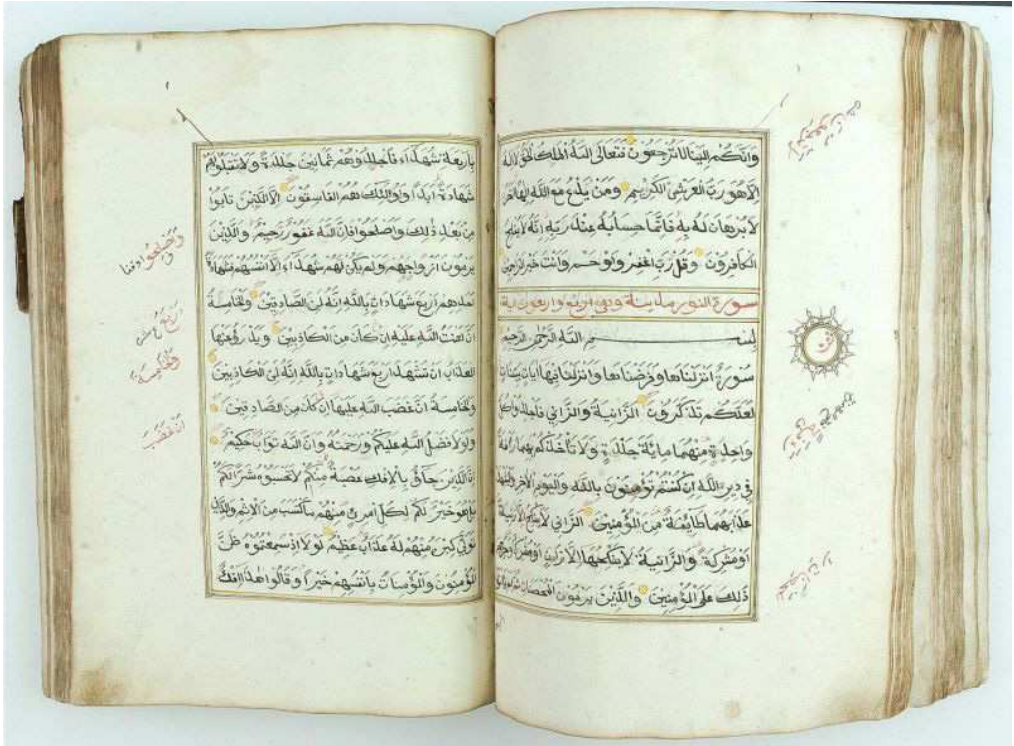 وَأَنَّكُمْ إِلَيْنَا لَا تُرْجَعُونَ فَتَعَالَى اللَّهُ الْمَلِكُ الْحَقُّ لَا إِلَهَ
إِلَّا هُوَ رَبُّ الْعَرْشِ الْكَرِيمِ وَمَنْ يَدْعُ مَعَ اللَّهِ إِلَهًا آخَرَ
لَا بُرْهَانَ لَهُ بِهِ فَإِنَّمَا حِسَابُهُ عِنْدَ رَبِّهِ إِنَّهُ لَا يُفْلِحُ
الْكَافِرُونَ وَقُلْ رَبِّ اغْفِرْ وَارْحَمْ وَأَنْتَ خَيْرُ الرَّاحِمِينَ
سورة النور مدينة وهي اربع واربعون اية
بسم الله الرَّحْمَنِ الرَّحِيمِ
سُورَةٌ أَنْزَلْنَاهَا وَفَرَضْنَاهَا وَأَنْزَلْنَا فِيهَا آيَاتٍ بَيِّنَاتٍ
لَعَلَّكُمْ تَذَكَّرُونَ الزَّانِيَةُ وَالزَّانِي فَاجْلِدُوا كُلَّ
وَاحِدٍ مِنْهُمَا مِائَةَ جَلْدَةٍ وَلَا تَأْخُذْكُمْ بِهِمَا رَأْفَةٌ
فِي دِينِ اللَّهِ إِنْ كُنْتُمْ تُؤْمِنُونَ بِاللَّهِ وَالْيَوْمِ الْآخِرِ وَلْيَشْهَدْ
عَذَابَهُمَا طَائِفَةٌ مِنَ الْمُؤْمِنِينَ الزَّانِي لَا يَنْكِحُ إِلَّا زَانِيَةً
أَوْ مُشْرِكَةً وَالزَّانِيَةُ لَا يَنْكِحُهَا إِلَّا زَانٍ أَوْ مُشْرِكٌ وَحُرِّمَ
ذَلِكَ عَلَى الْمُؤْمِنِينَ وَالَّذِينَ يَرْمُونَ الْمُحْصَنَاتِ ثُمَّ لَمْ يَأْتُوا
بِأَرْبَعَةِ شُهَدَاءَ فَاجْلِدُوهُمْ ثَمَانِينَ جَلْدَةً وَلَا تَقْبَلُوا لَهُمْ
شَهَادَةً أَبَدًا وَأُولَئِكَ هُمُ الْفَاسِقُونَ إِلَّا الَّذِينَ تَابُوا
مِنْ بَعْدِ ذَلِكَ وَأَصْلَحُوا فَإِنَّ اللَّهَ غَفُورٌ رَحِيمٌ وَالَّذِينَ
يَرْمُونَ أَزْوَاجَهُمْ وَلَمْ يَكُنْ لَهُمْ شُهَدَاءُ إِلَّا أَنْفُسُهُمْ فَشَهَادَةُ
أَحَدِهِمْ أَرْبَعُ شَهَادَاتٍ بِاللَّهِ إِنَّهُ لَمِنَ الصَّادِقِينَ وَالْخَامِسَةُ
أَنَّ لَعْنَتَ اللَّهِ عَلَيْهِ إِنْ كَانَ مِنَ الْكَاذِبِينَ وَيَدْرَؤُا عَنْهَا
الْعَذَابَ أَنْ تَشْهَدَ أَرْبَعَ شَهَادَاتٍ بِاللَّهِ إِنَّهُ لَمِنَ الْكَاذِبِينَ
وَالْخَامِسَةَ أَنَّ غَضَبَ اللَّهِ عَلَيْهَا إِنْ كَانَ مِنَ الصَّادِقِينَ
وَلَوْلَا فَضْلُ اللَّهِ عَلَيْكُمْ وَرَحْمَتُهُ وَأَنَّ اللَّهَ تَوَّابٌ حَكِيمٌ
إِنَّ الَّذِينَ جَاؤُ بِالْإِفْكِ عُصْبَةٌ مِنْكُمْ لَا تَحْسَبُوهُ شَرًّا لَكُمْ
بَلْ هُوَ خَيْرٌ لَكُمْ لِكُلِّ امْرِئٍ مِنْهُمْ مَا اكْتَسَبَ مِنَ الْإِثْمِ وَالَّذِي
تَوَلَّى كِبْرَهُ مِنْهُمْ لَهُ عَذَابٌ عَظِيمٌ لَوْلَا إِذْ سَمِعْتُمُوهُ ظَنَّ
الْمُؤْمِنُونَ وَالْمُؤْمِنَاتُ بِأَنْفُسِهِمْ خَيْرًا وَقَالُوا هَذَا إِفْكٌ
وَأَصْلَحُوا
وَالْخَامِسَةُ
أَنَّ غَضَبَ